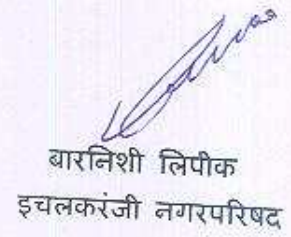 बारनिशी लिपीक
इचलकरंजी नगरपरिषद